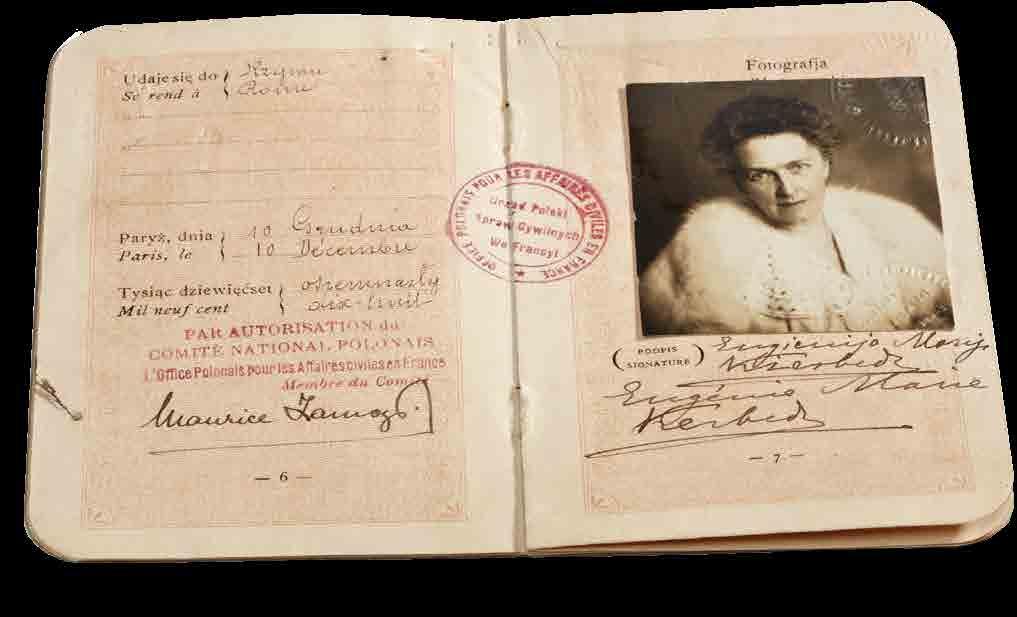 Udaje się do Rzymu
Se rend à Rome
Paryż, dnia 10 Grudnia
Paris, le 10 Décembre
Tysiąc dziewięćset osiemnasty
Mil neuf cent dix-huit
PAR AUTORISATION du
COMITÉ NATIONAL POLONAIS
L'Office Polonais pour les Affaires civiles en France
Membre du Comité
Maurice Zamoyski
— 6 —
OFFICE POLONAIS POUR LES AFFAIRES CIVILES EN FRANCE
Urząd Polski
Spraw Cywilnych
We Francyi
Fotografja
(PODPIS
SIGNATURE)
Eugienija Marija
Kierbedź
Eugénie Marie
Kerbedz
— 7 —